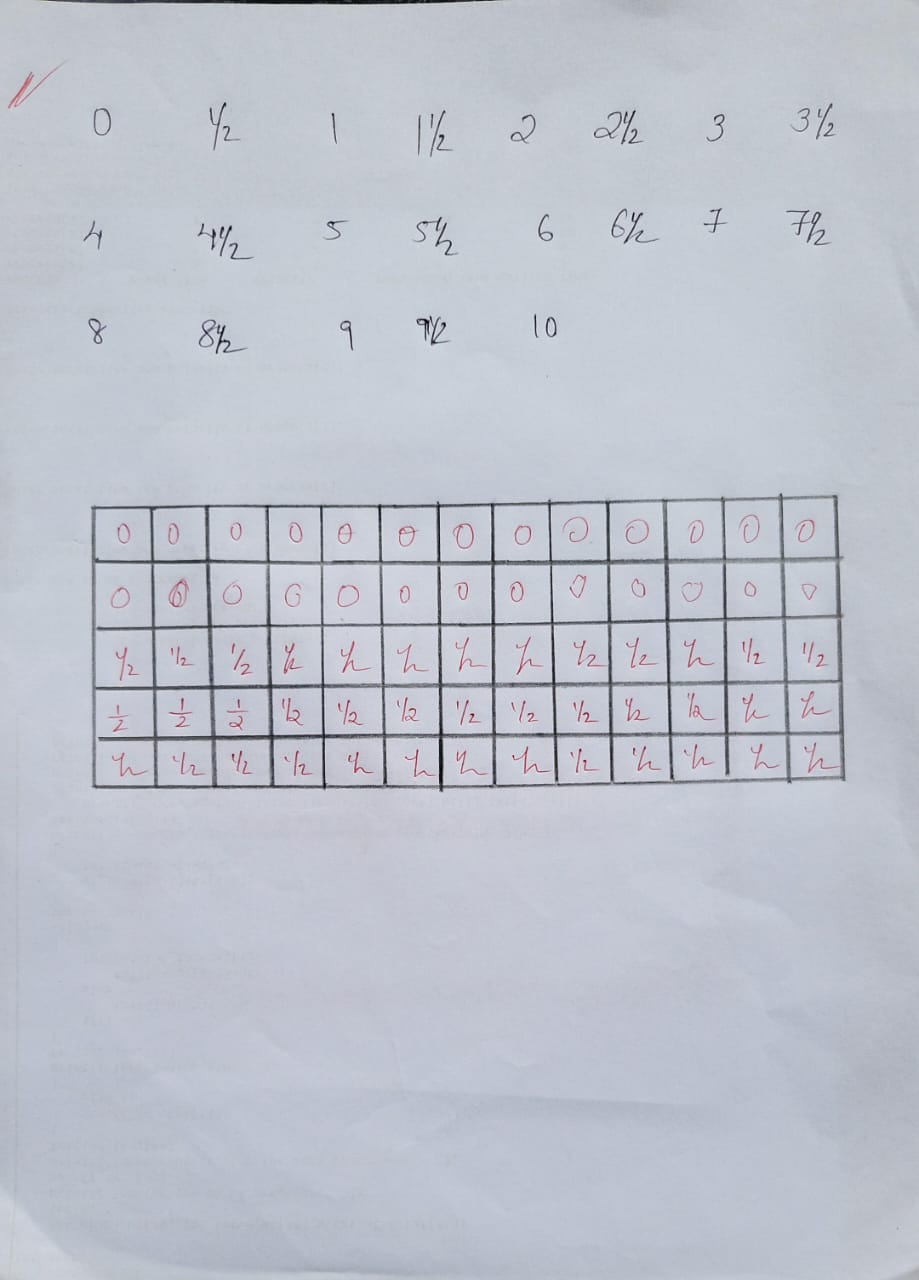 0 ½ 1 1½ 2 2½ 3 3½
4 4½ 5 5½ 6 6½ 7 7½
8 8½ 9 9½ 10
0 0 0 0 0 0 0 0 0 0 0 0 0
0 0 0 0 0 0 0 0 0 0 0 0 0
½ ½ ½ ½ ½ ½ ½ ½ ½ ½ ½ ½ ½
½ ½ ½ ½ ½ ½ ½ ½ ½ ½ ½ ½ ½
½ ½ ½ ½ ½ ½ ½ ½ ½ ½ ½ ½ ½